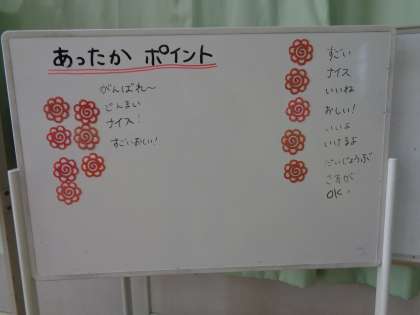 あったか ポイント
がんばれ〜
どんまい
ナイス！
すごいおしい！
すごい
ナイス
いいね
おしい！
いいよ
いけるよ
だいじょうぶ
こえが
OK.